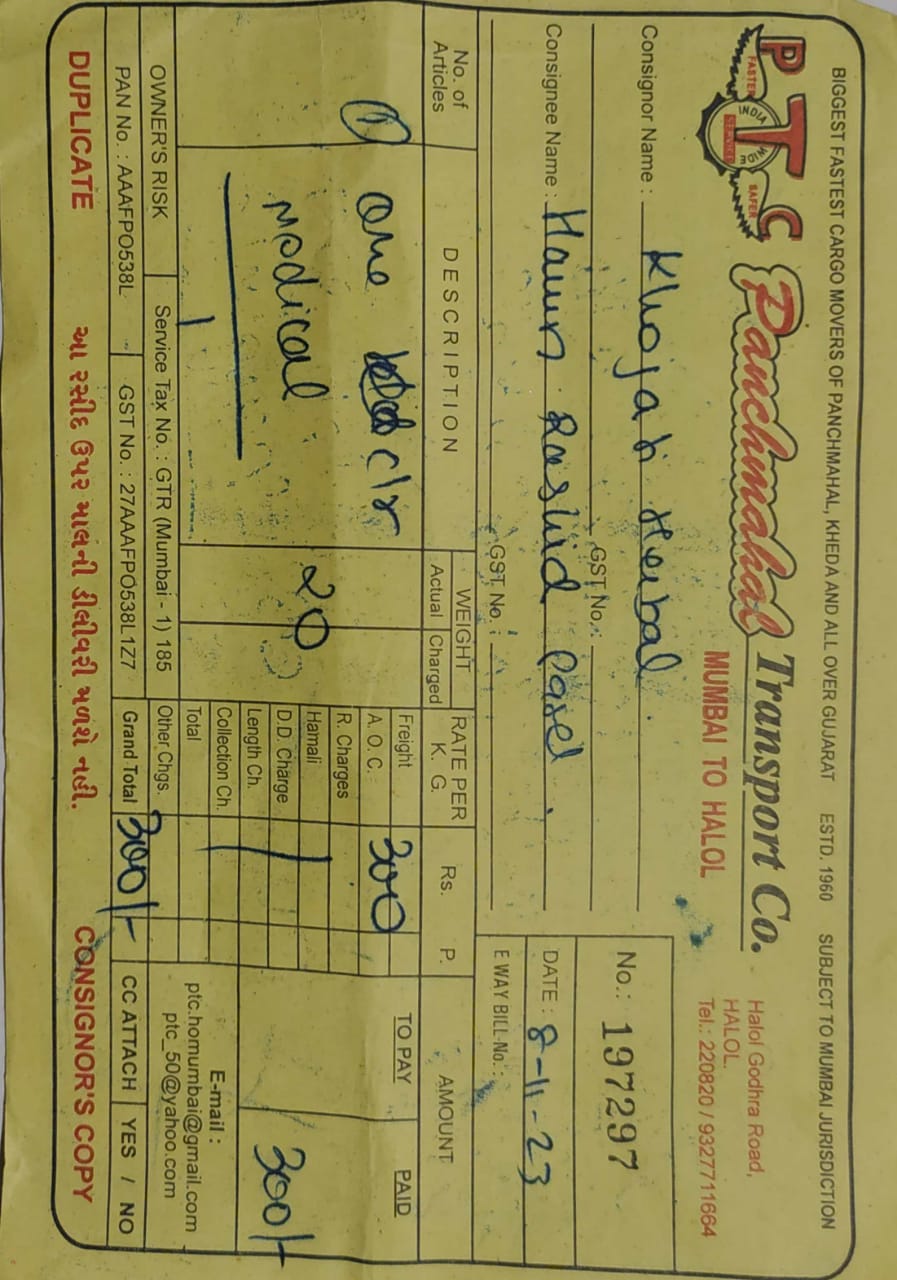 BIGGEST FASTEST CARGO MOVERS OF PANCHMAHAL, KHEDA AND ALL OVER GUJARAT ESTD. 1960 SUBJECT TO MUMBAI JURISDICTION
PTC
FASTER INDIA WIDE SERVICE SAFER
Panchmahal Transport Co.
MUMBAI TO HALOL
Halol Godhra Road,
HALOL.
Tel.: 220820 / 9327711664
No.: 197297
Consignor Name : Khojati Herbal
GST No.:
DATE : 8-11-23
Consignee Name : Haiun Rashid Patel
GST No. :
E WAY BILL No. :
No. of Articles DESCRIPTION WEIGHT Actual Charged RATE PER K. G. Rs. P. AMOUNT
TO PAY PAID
① one c/r
Medical
20
Freight 300
A. O. C.
R. Charges
Hamali
D.D. Charge
Length Ch.
Collection Ch.
Total
300/-
E-mail :
ptc.homumbai@gmail.com
ptc_50@yahoo.com
OWNER'S RISK Service Tax No. : GTR (Mumbai - 1) 185 Other Chgs.
PAN No. : AAAFPO538L GST No. : 27AAAFPO538L1Z7 Grand Total 300/- CC ATTACH YES / NO
DUPLICATE આ રસીદ ઉપર માલની ડીલીવરી મળશે નહી. CONSIGNOR'S COPY